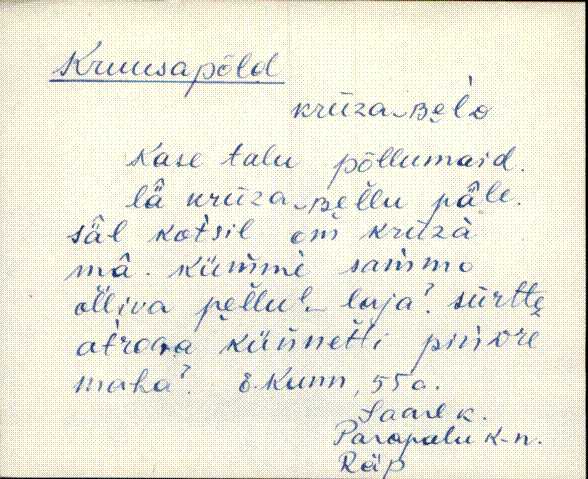 Kruusapõld
krūza-Be̮l'o
Kase talu põllumaid.
lǟ krūza-Be̮l̆lu päle.
säl kotsil om̆ krūza
mā. küm̆mi sam̆mo
ol̆liva pe̮l̆lul- luja? sūrtte
atroga kün̆netti pin̆ore
maha?. E. Kunn, 55 a.
Saare k.
Parapalu k-n.
Räp